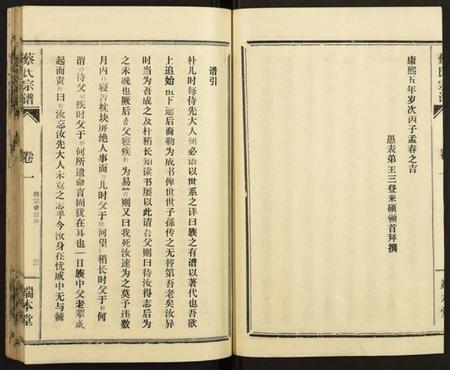 康熙五年岁次丙子孟春之吉
愚表弟王三登来硕顿首拜撰
谱引
朴儿时每侍先大人侧必语以世系之详曰族之有谱以著代也吾欲
上追始也下逮后裔勒为成书俾世世子孙传之无替第吾老矣汝异
时当为吾成之及朴稍长知读书屡以此请台父则曰待汝得志后为
之未晚也厥后父寝疾为易箦则又曰我死汝速为之莫予违数
月内寝苫枕块屏绝人事而儿时父于何望稍长时父于何
谓侍父疾时父于何所遗命言固犹在斗也一日族中父老辈咸
起而责曰汝忘汝先大人未竟之志乎今汝身在忧戚中无与棘
蔡氏宗谱
卷一
三
端本堂